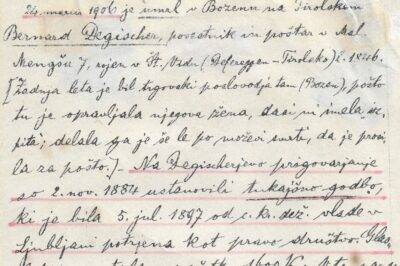 24. marca 1906 je umrl v Bozenu na Tirolskem
Bernard Degischer, posestnik in poštar v Mal.
Mengšu 7, rojen v Št. Vidu (Defereggen - Tirolsko) l. 1846.
[Zadnja leta je bil trgovski poslovodja tam (Bozen), pošto
tu je opravljala njegova žena, dasi ni imela iz-
pita; delala ga je še le po moževi smrti, da je prosi-
la za pošto.] - Na Degischerjevo prigovarjanje
so 2. nov. 1884 ustanovili tukajšno godbo,
ki je bila 5. jul. 1897 od c. kr. dež. vlade v
Ljubljani potrjena kot pravo društvo.